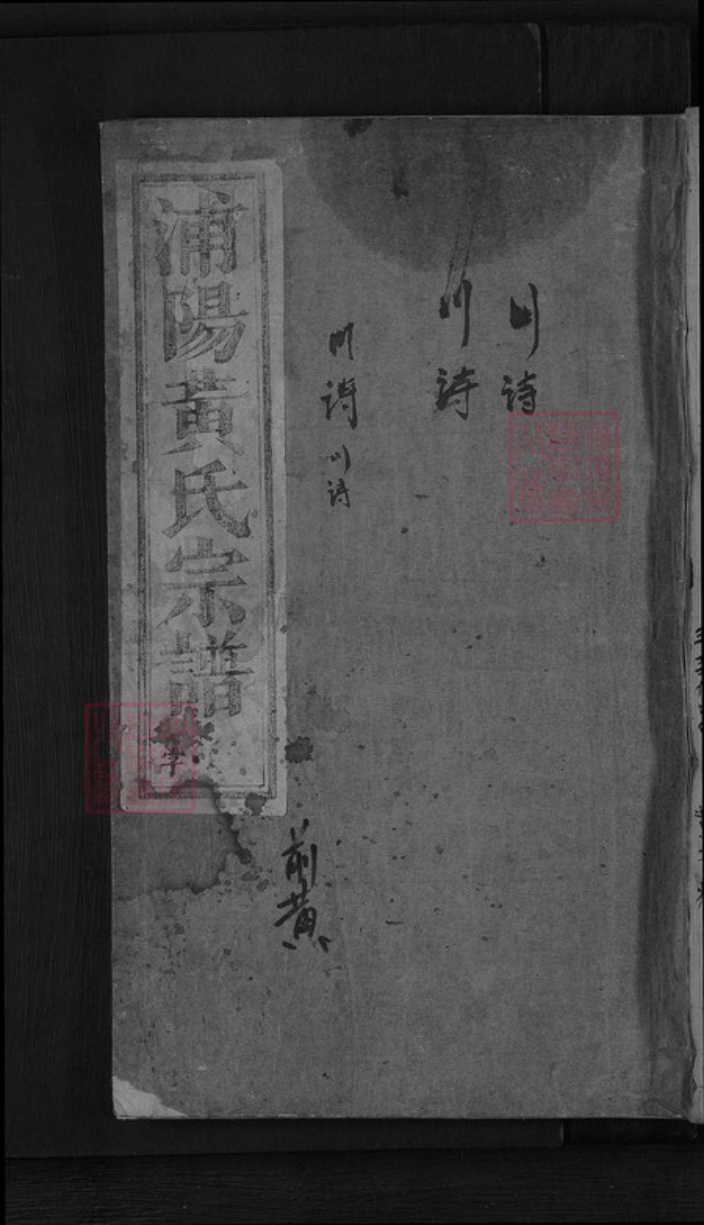 川詩
川詩
川詩
川詩
浦陽黃氏宗譜
前黄